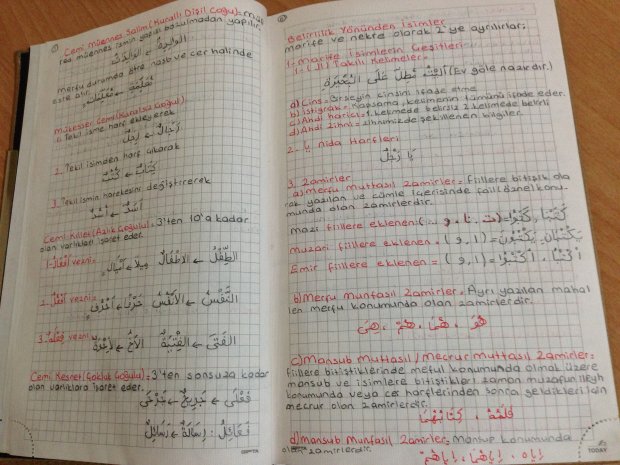 Cemi müennes Salim (Kurallı Dişil Çoğul) = müf
red müennes ismin yapısı bozulmadan yapılır.
الوالِدَةُ ← الوالِدَاتُ
merfu durumda ötre nasb ve cer halinde
esre alır.
Mükesser Cemi (Kuralsız Çoğul)
1. Tekil isme harf ekleyerek
رَجُلٌ ← رِجَالٌ
2. Tekil isimden harf çıkarak
كِتَابٌ ← كُتُبٌ
3. Tekil ismin harekesini değiştirerek
أَسَدٌ ← أُسُدٌ
Cemi Kıllet (Azlık Çoğulu) = 3'ten 10'a kadar
olan varlıkları işaret eder.
1- أَفْعَالٌ vezni =
الطِّفْلُ ← الأَطْفَالُ
2- أَفْعُلٌ vezni =
النَّفْسُ ← الأَنْفُسُ
3- فِعْلَةٌ vezni =
الفَتَى ← الفِتْيَةُ
Cemi Kesret (Çokluk Çoğulu) = 3'ten sonsuza kadar
olan varlıklara işaret eder.
فَعْلَى = جَرِيحٌ ← جَرْحَى
فَعَائِلُ : رِسَالَةٌ ← رَسَائِلُ
Belirlilik Yönünden İsimler
marife ve nekre olarak 2'ye ayrılırlar;
1- Marife İsimlerin Çeşitleri
1- (ال) Takılı Kelimeler =
تُطِلُّ عَلَى البُحَيْرَةِ (Ev göle nazırdır.)
a) Cins = Bir şeyin cinsini ifade etme
b) İstigrak = Kapsama, kelimenin tümünü ifade eder.
c) Ahdi harici = 1. kelimede belirsiz 2. kelimede belirli
d) Ahdi zihni = zihnimizde şekillenen bilgiler.
2- يا nida Harfleri
يَا رَجُلُ
3. Zamirler
a) merfu muttasıl zamirler = fiillere bitişik ola
rak yazılan ve cümle içerisinde fail (özne) konu
munda olan zamirlerdir.
mazi fiillere eklenen
كَتَبْنَا, كَتَبُوا
muzari fiillere eklenen = (ا, و)
يَكْتُبَانِ, يَكْتُبُونَ
Emir fiillere eklenen = (ا, و)
اُكْتُبَا, اُكْتُبُوا
b) Merfu munfasıl zamirler = Ayrı yazılan mahal
len merfu konumunda olan zamirlerdir.
هُوَ ، هُمَا ، هُمْ ، هِيَ
c) Mansub Muttasıl / Mecrur muttasıl zamirler =
fiillere bitiştiklerinde meful konumunda olmak üzere
mansub ve isimlere bitiştikleri zaman muzafun ileyh
konumunda veya cer harflerinden sonra geldikleri için
mecrur olan zamirlerdir.
قَلَمُهُ ، كِتَابُهُمَا
d) mansub munfasıl zamirler: mansub konumunda
olan zamirlerdir.
إِيَّاهُ ، إِيَّاهُمَا ، إِيَّاهُمْ
TODAY